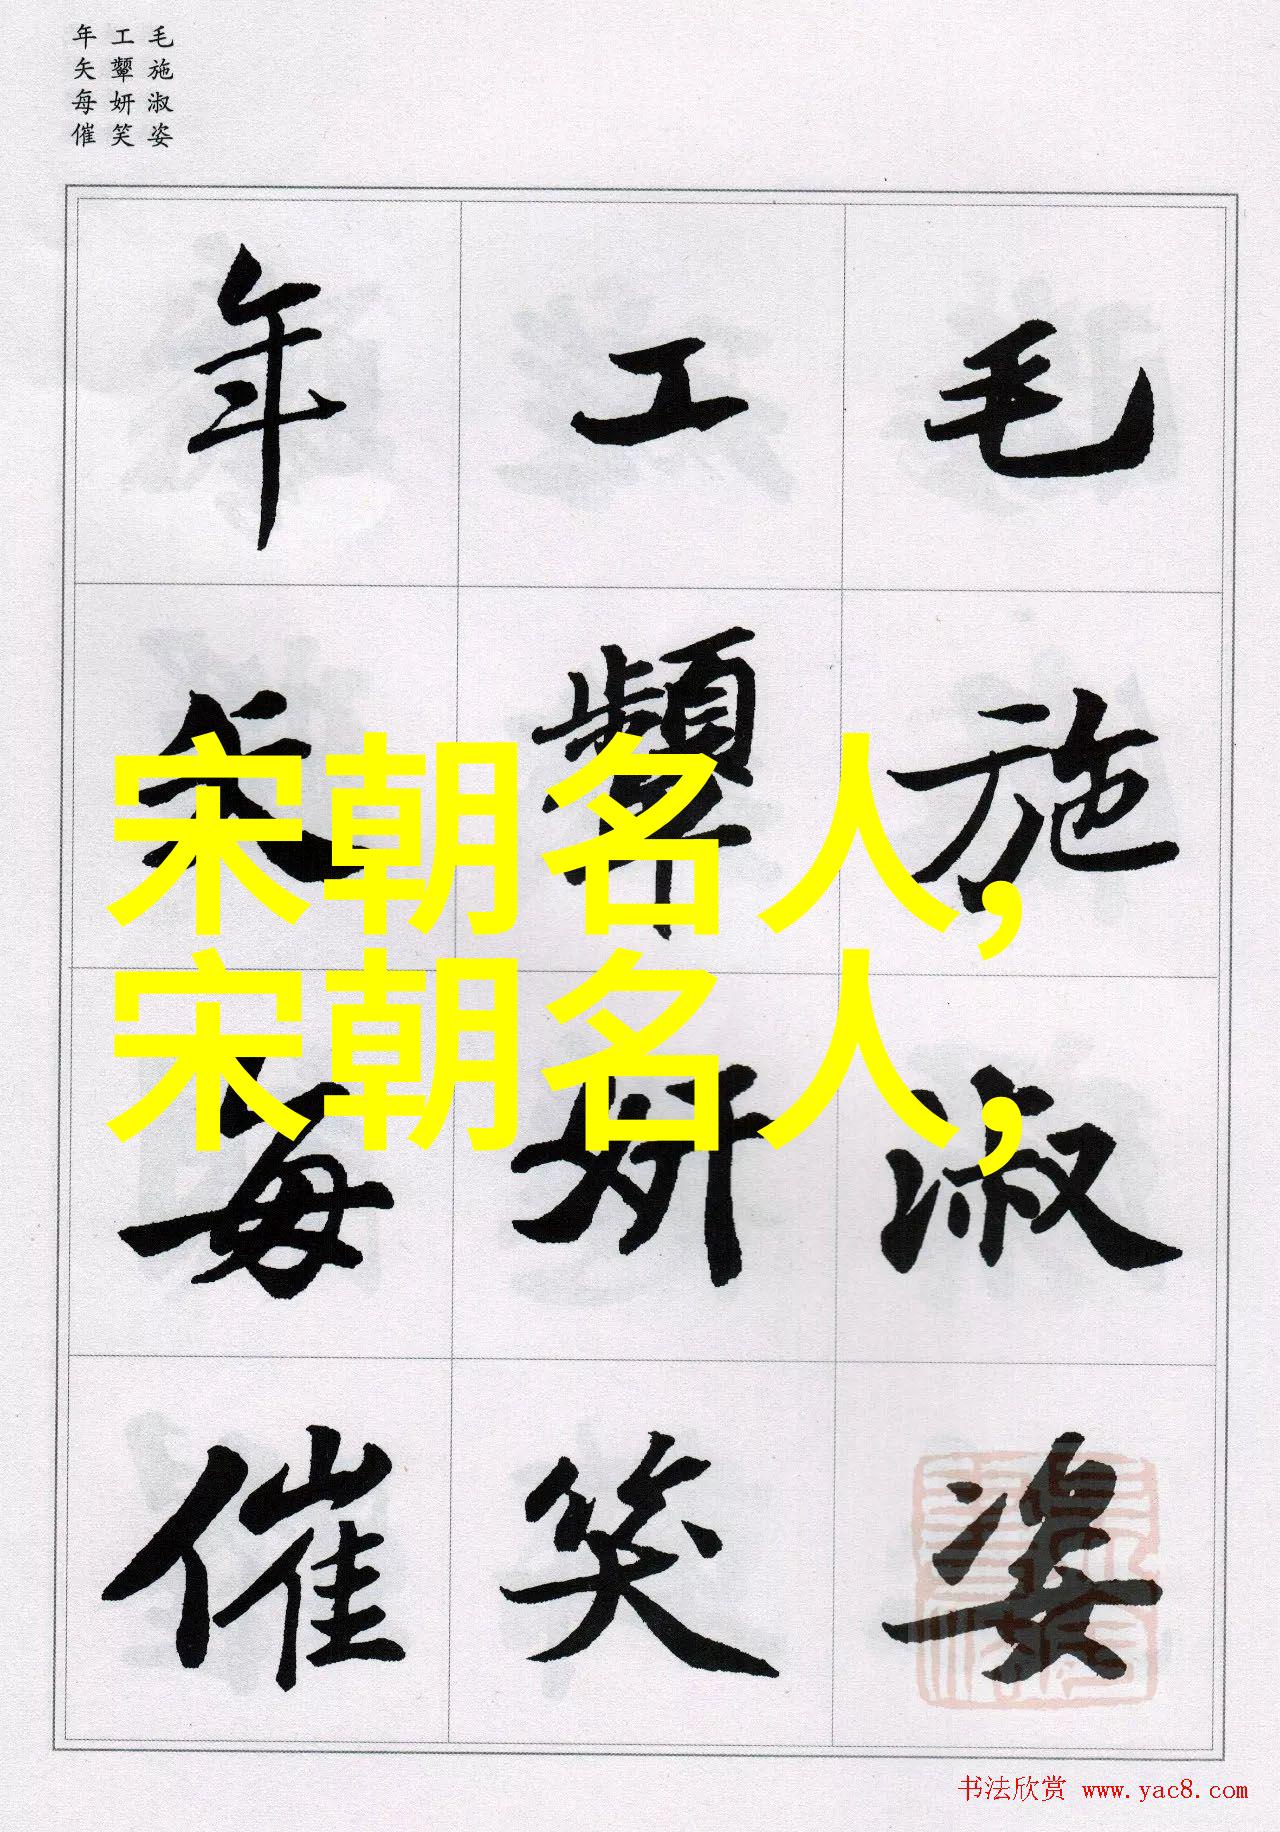 毛施淑姿
工颦妍笑
年矢每催
毛施淑姿
工颦妍笑
年矢每催
宋朝名人,
宋朝名人,
书法欣赏 www.yac8.com